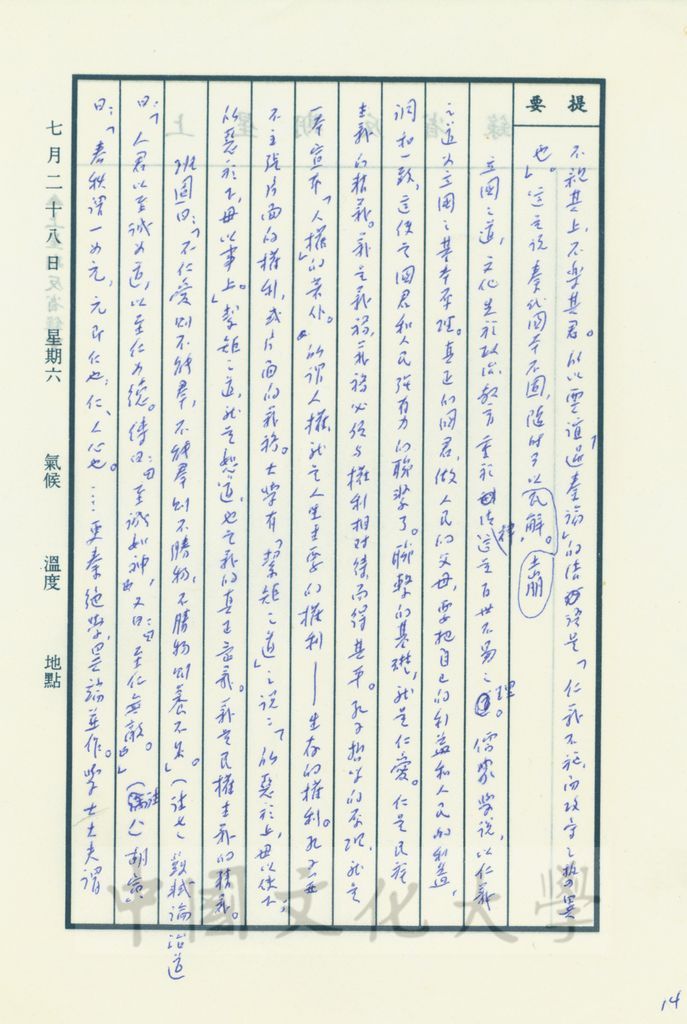 提要
不親其上,不樂其君。所以賈誼「過秦論」的結語是「仁義不施,而攻守之勢異
也。」這是說秦代國本不固,隨時可以土崩瓦解。
立國之道,文化先於政治,教育重於法律,這是百世不易之理。儒家學說,以仁義
之道為立國之基本原理。真正的國君,做人民的父母,要把自己的利益和人民的利益,
調和一致,這使之國君和人民強有力的聯繫了。聯繫的基礎,就是仁愛。仁是民族
主義的精義。義是義務,義務必須與權利相對待而得其平。孔子哲學的原理,就是
一本宣布「人權」的著作。所謂人權,就是人生主要的權利——生存的權利。孔子並
不主張片面的權利,或片面的義務。大學有「絜矩之道」之說:「所惡於上,毋以使下;
所惡於下,毋以事上。」絜矩之道,就是恕道,也是義的真正意義。義是民權主義的精義。
班固曰:「不仁愛則不能群,不能群則不勝物,不勝物則養不足。」(註七)蘇軾論治道
曰:「人君以至誠為道,以至仁為德。傳曰:『至誠如神』,又曰:『至仁無敵』。」(註八)胡宏
曰:「春秋謂一為元,元即仁也;仁,人心也。…更秦絕學,異端並作。學士大夫謂
七月二十八日 星期六 氣候 溫度 地點
中國文化大學
14